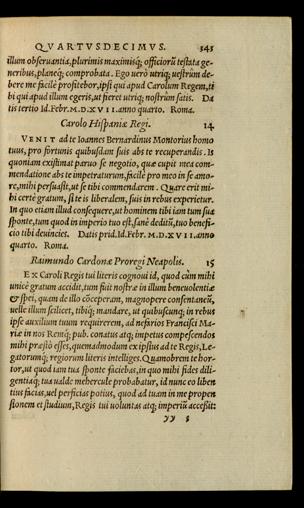 QVARTVSDECIMVS. 343
illum obseruantia, plurimis maximisq; officiorũ testata ge-
neribus, planeq; comprobata. Ego uerò utriq; uestrûm de-
bere me facilè profitebor, ipsi qui apud Carolum Regem, ti
bi qui apud illum egeris, ut fieret utriq; nostrûm satis. Da
tis tertio Id. Febr. M.D.XVII. anno quarto. Roma.
Carolo Hispaniæ Regi. 14
VENIT ad te Ioannes Bernardinus Montorius homo
tuus, pro fortunis quibusdam suis abs te recuperandis. Is
quoniam existimat paruo se negotio, quæ cupit mea com-
mendatione abs te impetraturum, facilè pro meo in se amo-
re, mihi persuasit, ut se tibi commendarem. Quare erit mi-
hi certè gratum, si te is liberalem, suis in rebus experietur.
In quo etiam illud consequere, ut hominem tibi iam tum sua
sponte, tum quod in imperio tuo est, sanè deditũ, tuo benefi-
cio tibi deuincies. Datis prid. Id. Febr. M.D.XVII. anno
quarto. Roma.
Raimundo Cardonæ Proregi Neapolis. 15
EX Caroli Regis tui literis cognoui id, quod cùm mihi
unicè gratum accidit, tum fuit nostræ in illum beneuolentiæ
& spei, quam de illo cœperam, magnopere consentaneũ,
uelle illum scilicet, tibiq; mandare, ut quibuscunq; in rebus
ipse auxilium tuum requirerem, ad nefarios Francisci Ma-
riæ in nos Remq; pub. conatus atq; impetus compescendos
mihi præstò esses, quemadmodum ex ipsius ad te Regis, Le-
gatorumq; regiorum literis intelliges. Quamobrem te hor-
tor, ut quod iam tua sponte faciebas, in quo mihi fides dili-
gentiaq; tua ualde mehercule probabatur, id nunc eo liben
tius facias, uel perficias potius, quod ad tuam in me propen
sionem et studium, Regis tui uoluntas atq; imperiũ accessit:
yy 3